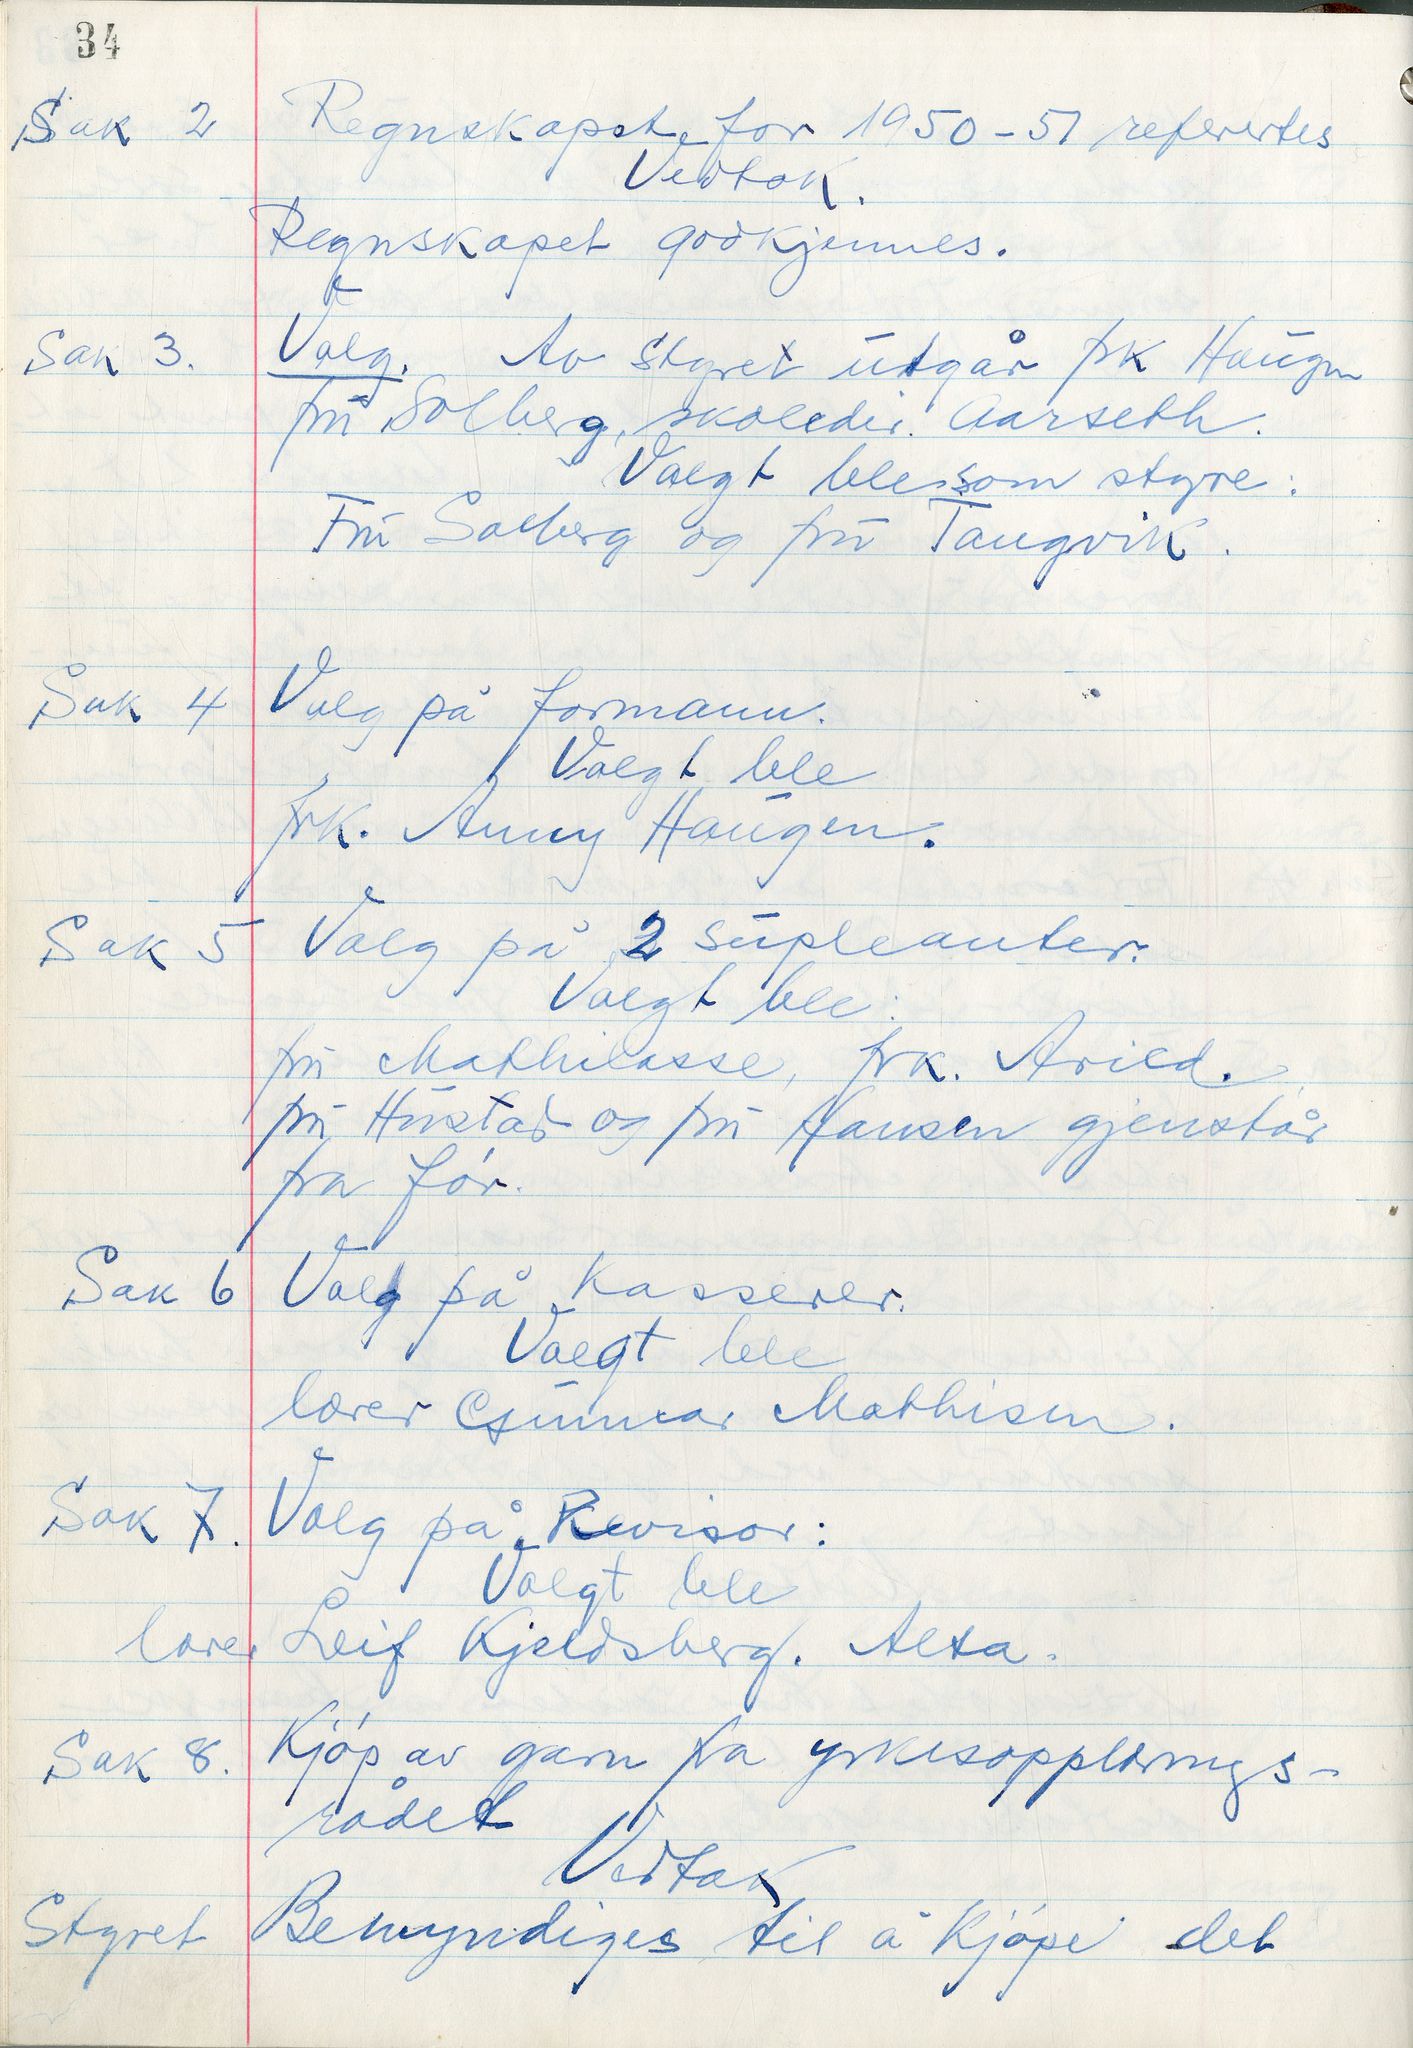 34
Sak 2 Regnskapet for 1950-51 referertes
Vedtak.
Regnskapet godkjennes.
Sak 3. Valg. Av styret utgår frk Haugen
fru Solberg, skoledir. Aarseth.
Valgt ble som styre:
Fru Solberg og fru Tangvik.
Sak 4 Valg på formann.
Valgt ble
frk. Anny Haugen.
Sak 5 Valg på 2 supleanter:
Valgt ble:
fru Mathilasse, frk. Arild.
fru Hustad og fru Hansen gjenstår
fra før.
Sak 6 Valg på kasserer.
Valgt ble
lærer Gunnar Mathisen.
Sak 7. Valg på Revisor:
Valgt ble
lærer Leif Kjeldsberg. Alta.
Sak 8. Kjøp av garn fra yrkesopplærings-
rådet
Vedtak
Styret Bemyndiges til å kjøpe det